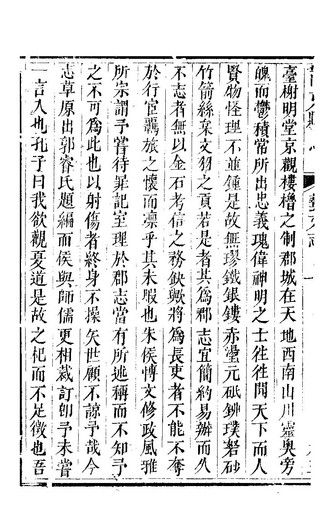 臺榭明堂京觀樓櫓之制郡城在天地西南山川靈輿旁
魄而鬱積常所出忠義瑰偉神明之士往往問天下而人
賢物怪理不並鍾是故無璆鐵銀鏤赤堊元砥銣璞砮砂
竹箭絲枲文羽之貢若是者其為郡志宜簡約易辦而久
不志者無以金石考信之務鈌歟將為長吏者不能不奪
於行宦羈旅之懷而凛乎其未暇也朱侯博文修政風雅
所宗謂予嘗待罪記室理於郡志當有所述稱而不知予
之不可為此也以射傷者終身不操矢世顧不諒予哉今
志草原出郭睿氏題編而侯與師儒更相裁訂卽予未嘗
一言入也孔子曰我欲觀夏道是故之杞而不足徵也吾